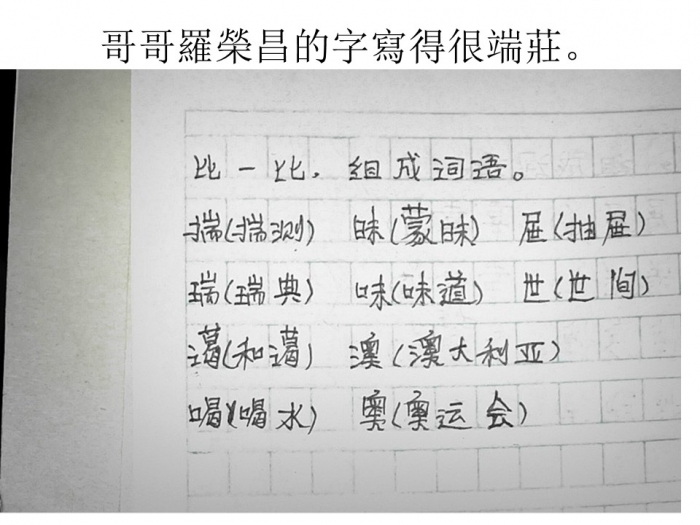 哥哥羅榮昌的字寫得很端莊。
比一比，组成词语。
揣(揣测) 昧(蒙昧) 屉(抽屉)
瑞(瑞典) 味(味道) 世(世间)
蔼(和蔼) 澳(澳大利亚)
喝(喝水) 奥(奥运会)